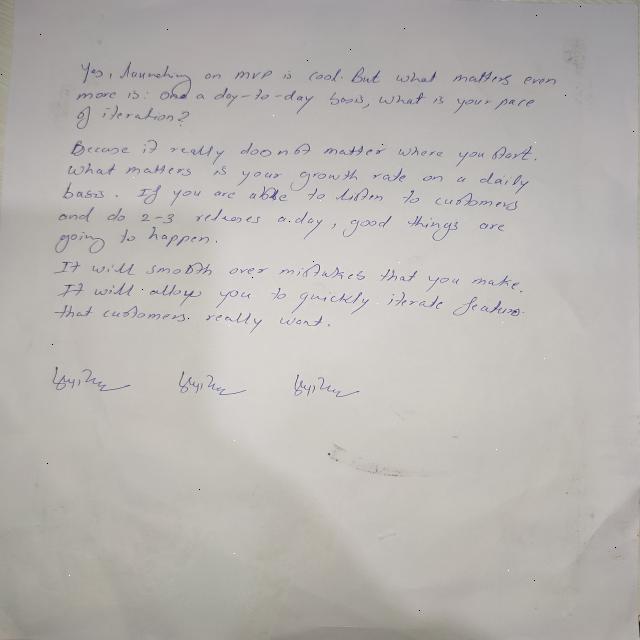 Yes, launching an MVP is cool. But what matters even
more is: on a day-to-day basis, what is your pace
of iteration?
Because it really does not matter where you start.
What matters is your growth rate on a daily
basis. If you are able to listen to customers
and do 2-3 releases a day, good things are
going to happen.
It will smooth over mistakes that you make.
It will allow you to quickly iterate features
that customers really want.